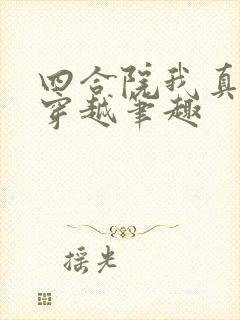 四合院我真
穿越笔趣
摇光